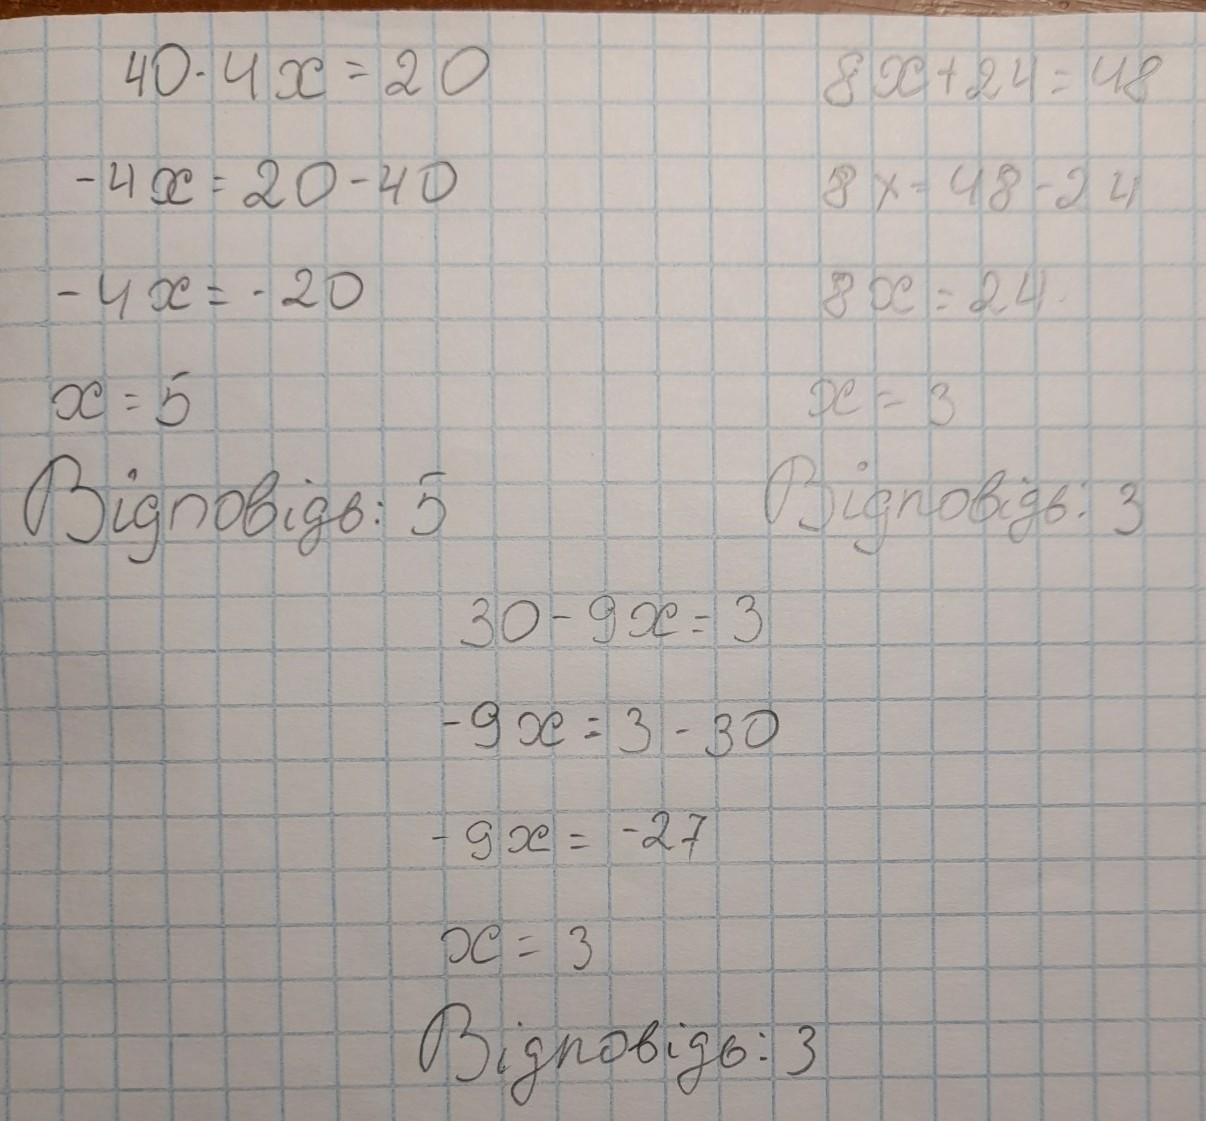 40-4x=20
-4x=20-40
-4x=-20
x=5
Відповідь: 5
8x+24=48
8x=48-24
8x=24
x=3
Відповідь: 3
30-9x=3
-9x=3-30
-9x=-27
x=3
Відповідь: 3